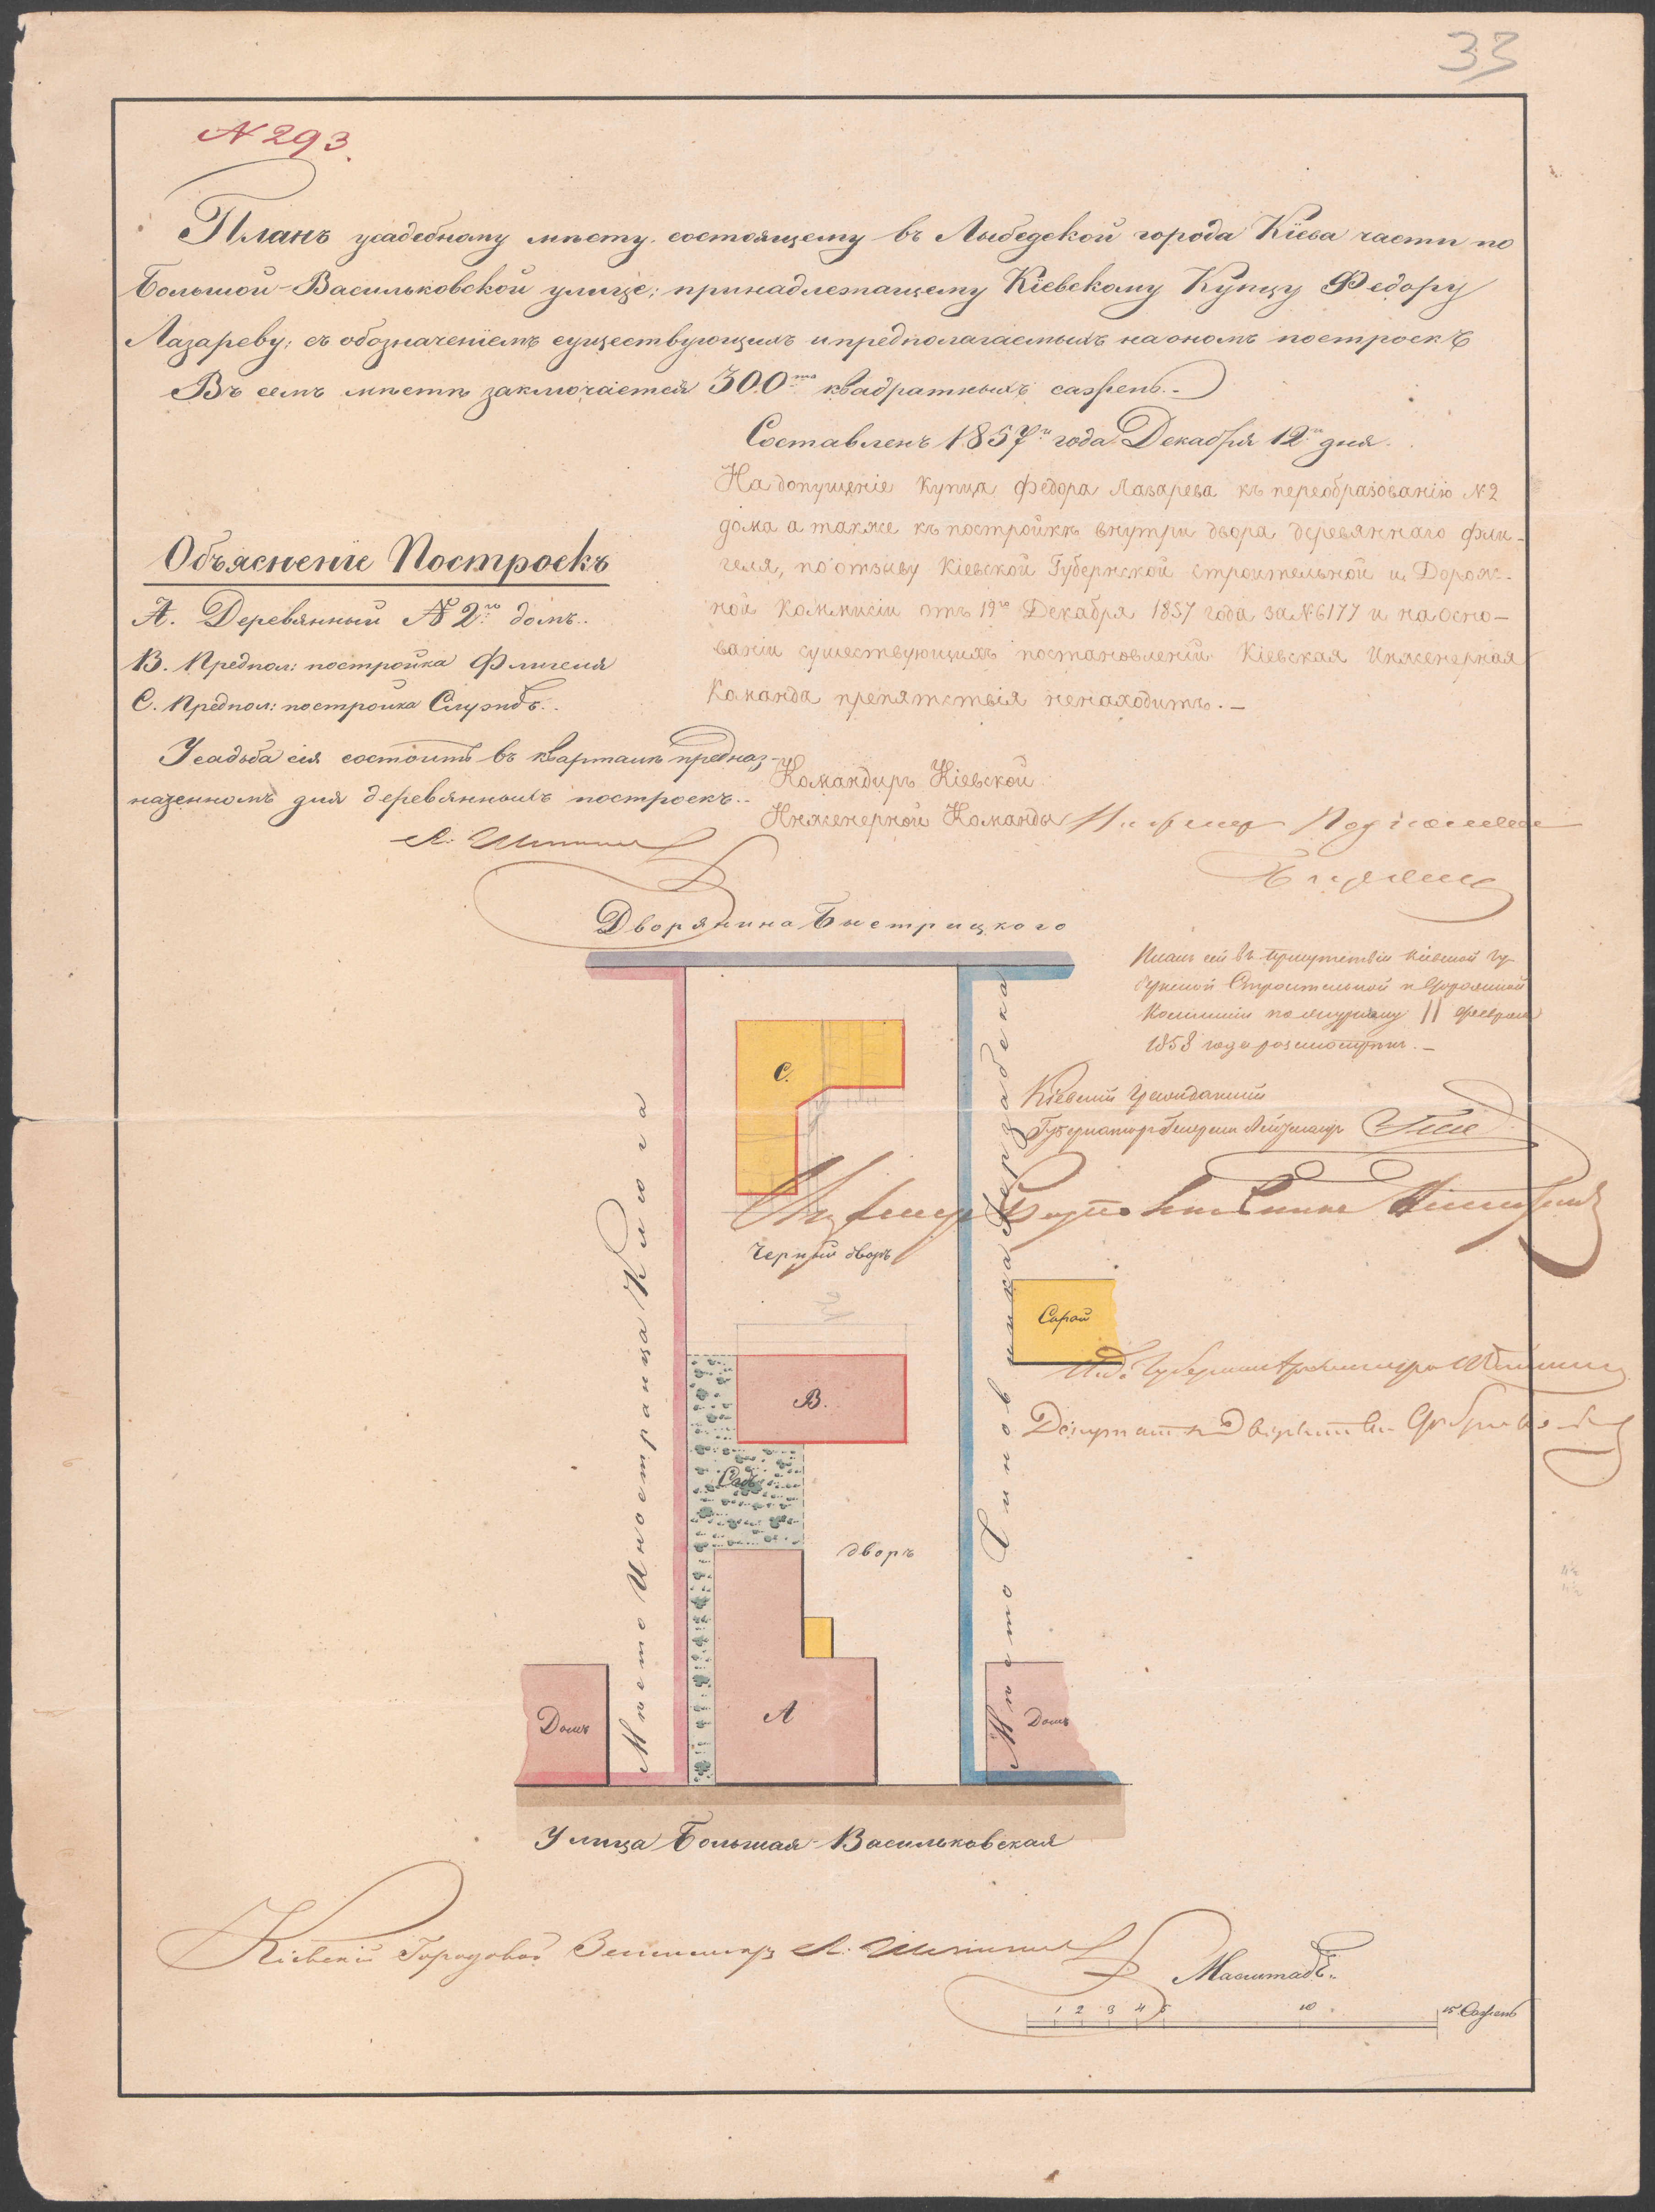 33
N 293.
Планъ усадебному мѣсту, состоящему въ Лыбедской города Кіева части по
Большой-Васильковской улице; принадлежащему Кіевскому Купцу Федору
Лазареву; съ обозначеніемъ существующихъ и предполагаемыхъ на ономъ построекъ
Въ семъ мѣстѣ заключается 300то квадратныхъ сажень.-
Составленъ 1857го года Декабря 12го дня.
На допущеніе Купца Федора Лазарева къ переобразованію №2
дома а также къ постройкѣ внутри двора деревяннаго фли-
геля, по отзыву Кіевской Губернской строительной и Дорож-
ной Коммисіи отъ 19го Декабря 1857 года за №6177 и на осно-
ваніи существующихъ постановленій Кіевская Инженерная
Команда препятствія ненаходитъ.-
Командиръ Кіевской
Инженерной Команды
Объясненіе Построекъ
А. Деревянный №2го домъ.
В. Предпол: постройка Флигеля
С. Предпол: постройка Службъ.
Усадьба сія состоитъ въ кварталѣ предназ-
наченномъ для деревянныхъ построекъ.
Дворянина Быстрицкого
Планъ сей въ присутствіи Кіевской Гу-
бернской Строительной и Дорожной
Коммисіи по журналу 11 Февраля
1858 года
Кіевскій Гражданскій
Губернаторъ
С.
Черный дворъ
Мѣсто Иностранца Клюга
Мѣсто Чиновника
Сарай
В.
Садъ
дворъ
А
Домъ
Домъ
Улица Большая-Васильковская
Кіевскій Городовой Землемѣръ
Масштабъ.
1 2 3 4 5 10 15 Сажень